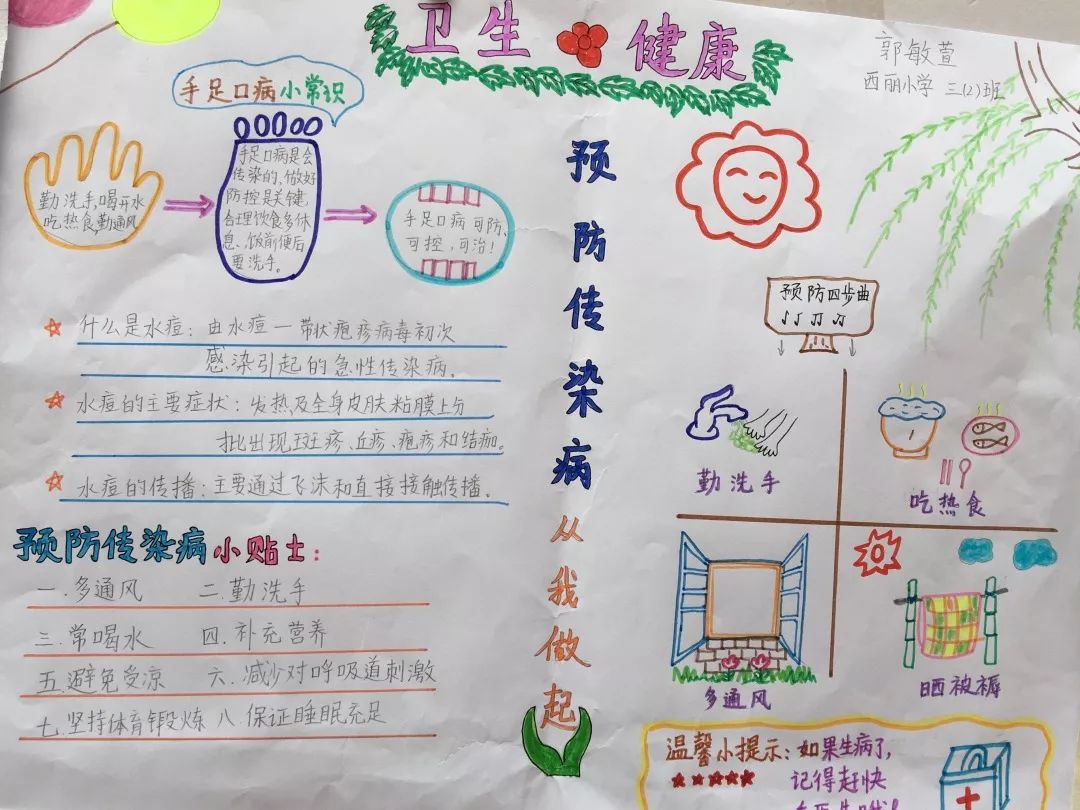 卫生健康
郭敏萱
西丽小学 三(2)班
手足口病小常识
勤洗手,喝开水
吃热食勤通风
手足口病是会
传染的,做好
防控是关键,
合理饮食多休
息、饭前便后
要洗手。
手足口病可防、
可控,可治!
什么是水痘:由水痘一带状疱疹病毒初次
感染引起的急性传染病。
水痘的主要症状:发热及全身皮肤粘膜上分
批出现斑疹、丘疹、疱疹和结痂。
水痘的传播:主要通过飞沫和直接接触传播。
预防传染病小贴士:
一.多通风 二.勤洗手
三.常喝水 四.补充营养
五.避免受凉 六.减少对呼吸道刺激
七.坚持体育锻炼 八.保证睡眠充足
预防传染病从我做起
预防四步曲
勤洗手
吃热食
多通风
晒被褥
温馨小提示:如果生病了,
记得赶快